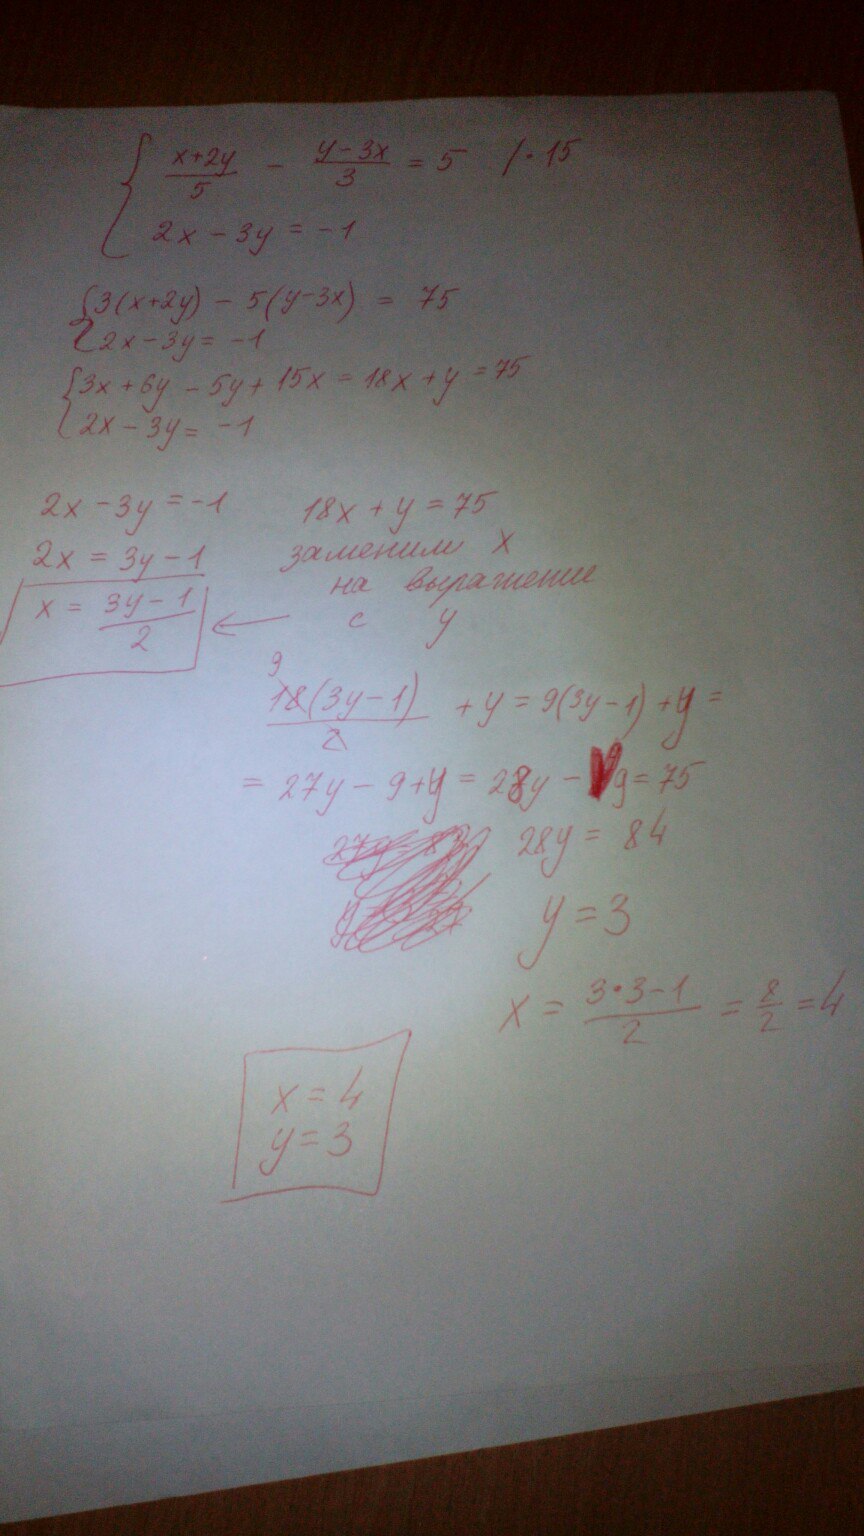 { (x+2y)/5 - (y-3x)/3 = 5 /·15
2x - 3y = -1
{ 3(x+2y) - 5(y-3x) = 75
2x - 3y = -1
{ 3x + 6y - 5y + 15x = 18x + y = 75
2x - 3y = -1
2x - 3y = -1 18x + y = 75
2x = 3y - 1 заменили x
x = (3y - 1)/2 ← на выражение
с y
9
18(3y-1)/2 + y = 9(3y-1) + y =
= 27y - 9 + y = 28y - 9 = 75
28y = 84
y = 3
x = (3·3-1)/2 = 8/2 = 4
x = 4
y = 3